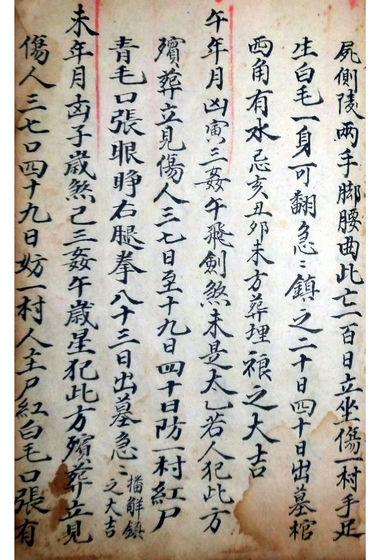 屍側陵两手脚腰曲此亡一百日立坐傷一村手足
生白毛一身可翻急〻鎮之二十日四十日出墓棺
西角有水忌亥丑卯未方葬埋禳之大吉
午年月凶寅三姦午飛劍煞未是太乙若人犯此方
殯葬立見傷人三七日至十九日四十日防一村紅尸
青毛口張眼睁右腿拳八十三日出墓急〻
播解鎮之大吉
未年月凶子歲煞己三姦午歲星犯此方殯葬立見
傷人三七口四十九日妨一村人主尸紅白毛口張有